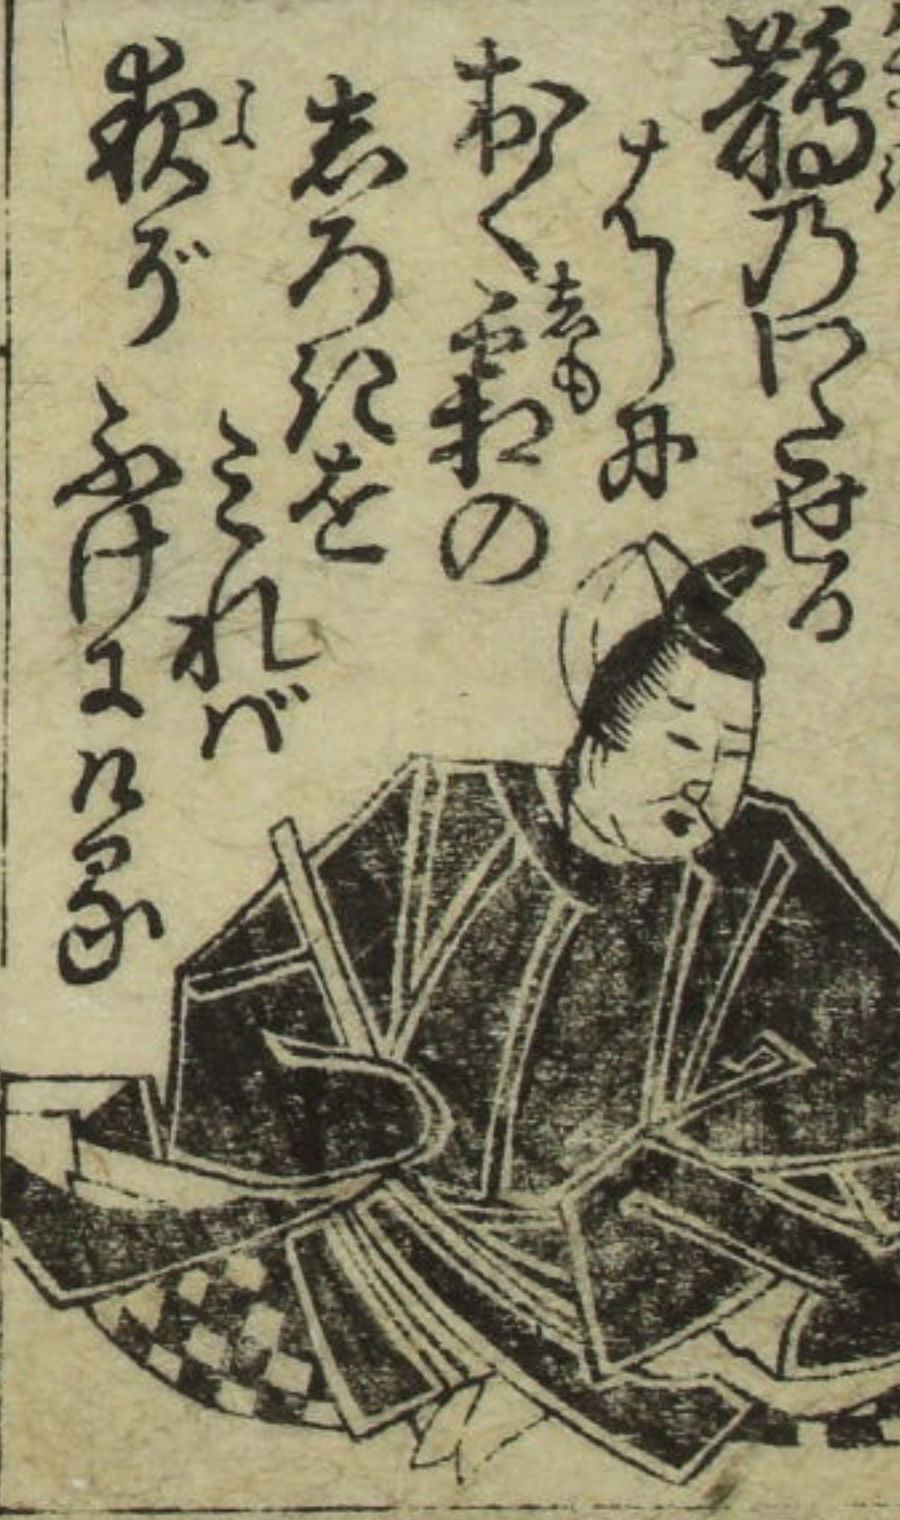 鵲乃わたせる
はしに
おく霜の
しもしろきを
みれば
夜ぞ
ふけにける